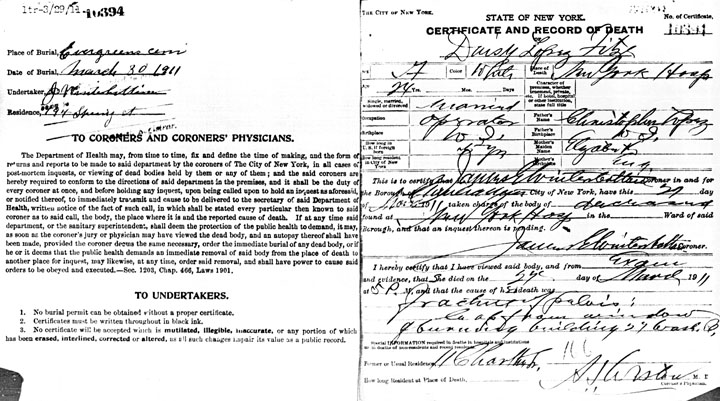 10394
Place of Burial, Evergreens Cem
Date of Burial, March 30 1911
Undertaker,
Residence,
TO CORONERS AND CORONERS' PHYSICIANS.
The Department of Health may, from time to time, fix and define the time of making, and the form of
returns and reports to be made to said department by the coroners of The City of New York, in all cases of
post-mortem inquests, or viewing of dead bodies held by them or any of them; and the said coroners are
hereby required to conform to the directions of said department in the premises, and it shall be the duty of
every coroner at once, and before holding any inquest, upon being called upon to hold an inquest as aforesaid,
or notified thereof, to immediately transmit and cause to be delivered to the secretary of said Department of
Health, written notice of the fact of such call, in which shall be stated every particular then known to said
coroner as to said call, the body, the place where it is and the reported cause of death. If at any time said
department, or the sanitary superintendent, shall deem the protection of the public health to demand, it may,
as soon as the coroner's jury or physician may have viewed the dead body, and an autopsy thereof shall have
been made, provided the coroner deems the same necessary, order the immediate burial of any dead body, or if
he or it deems that the public health demands an immediate removal of said body from the place of death to
another place for inquest, may likewise, at any time, order said removal, and shall have power to cause said
orders to be obeyed and executed.—Sec. 1203, Chap. 466, Laws 1901.
TO UNDERTAKERS.
1. No burial permit can be obtained without a proper certificate.
2. Certificates must be written throughout in black ink.
3. No certificate will be accepted which is mutilated, illegible, inaccurate, or any portion of which
has been erased, interlined, corrected or altered, as all such changes impair its value as a public record.
THE CITY OF NEW YORK.
STATE OF NEW YORK.
No. of Certificate,
CERTIFICATE AND RECORD OF DEATH
10394
Daisy Lopez Fitze
Color White Place of Death New York Hosp
24 Yrs. Mos. Days
Character of premises, whether tenement, private, etc. If hotel, hospital or other institution, state full title
Single, married, widowed or divorced Married
Occupation Operator
Father's Name Christopher Lopez
Birthplace
Father's Birthplace
How long in U. S. if foreign born
Mother's Maiden Name
How long resident in City of New York
Mother's Birthplace Eng
This is to certify
Coroner in and for
the Borough of City of New York, have this day
of 1911 taken charge of the body of deceased
found at New York Hosp in the Ward of said
Borough, and that an inquest thereon is pending.
Coroner.
I hereby certify that I have viewed said body, and from
and evidence, that she died on the day of March 1911
at 5 P M, and that the cause of her death was
fracture of pelvis:
leap from window
of burning building
Special INFORMATION required in deaths in hospitals and institutions
and in deaths of non-residents and recent residents.
Former or Usual Residence, 11 Charlton St.
How long Resident at Place of Death,
M. D.
Coroner's Physician.